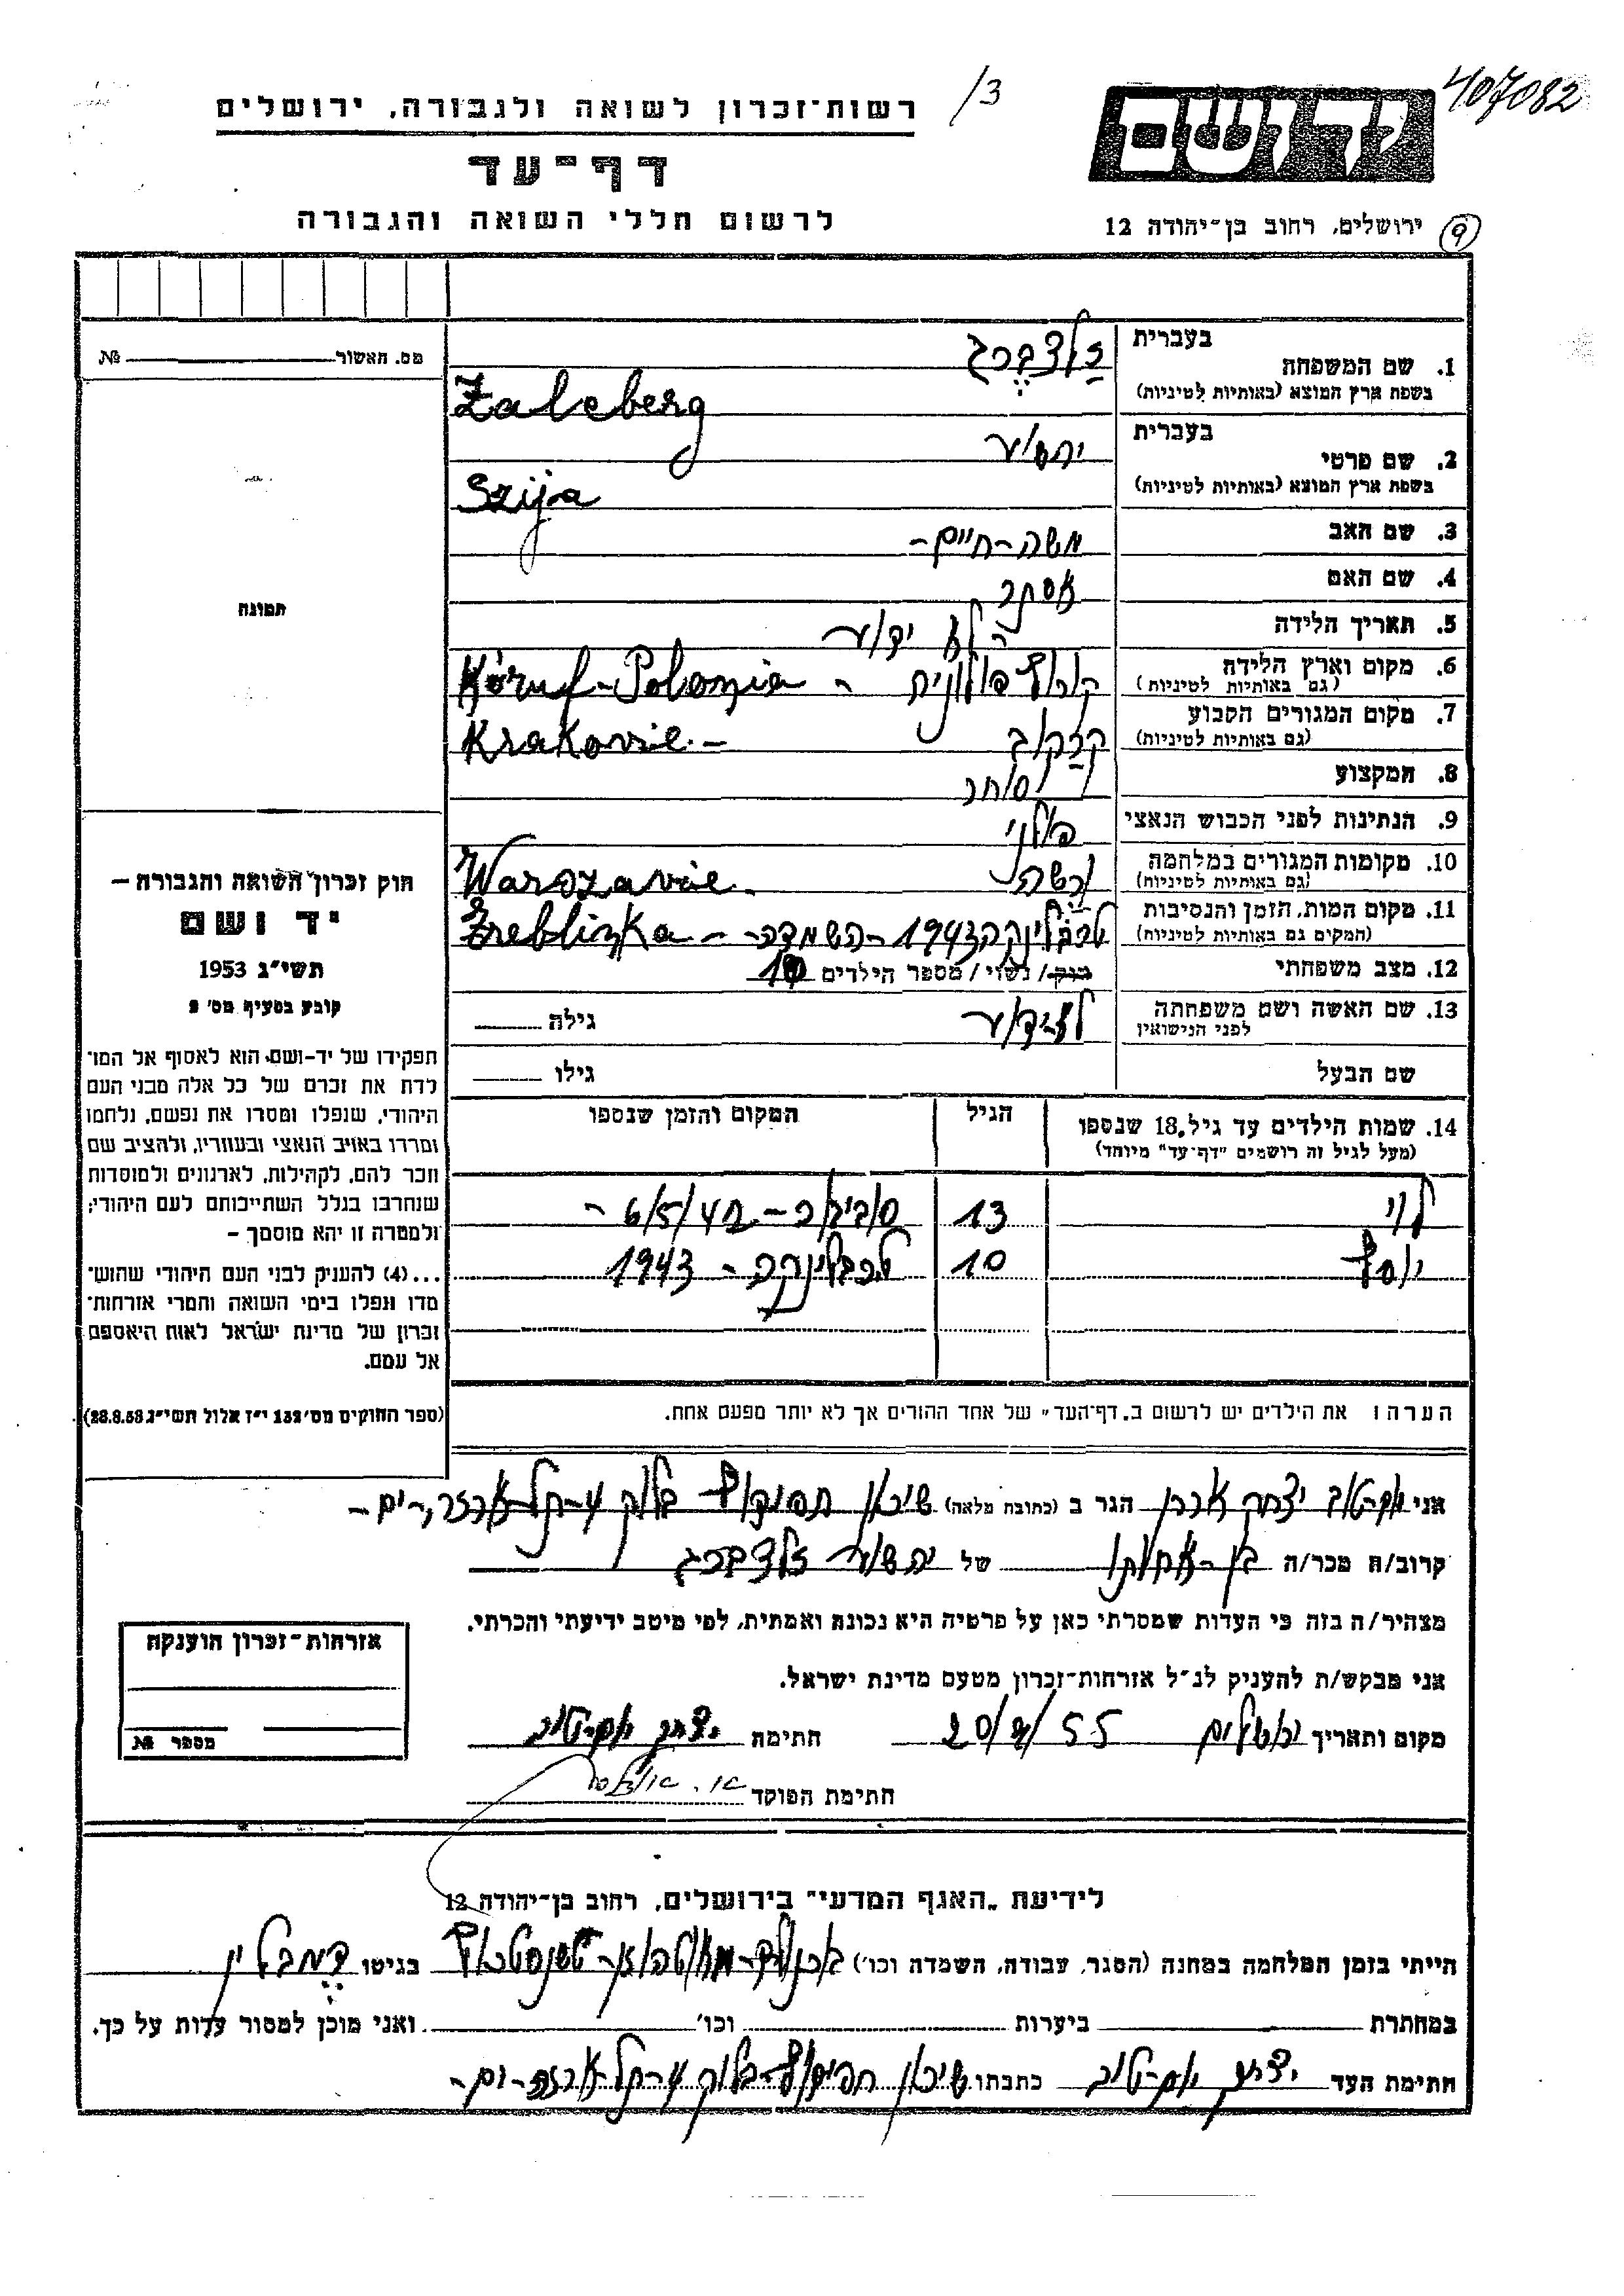 407082
/3
רשות־זכרון לשואה ולגבורה, ירושלים
יד ושם
דף־עד
לרשום חללי השואה והגבורה
ירושלים, רחוב בן־יהודה 12
9
מס. האשור №
1. שם המשפחה בעברית זלצברג
בשפת ארץ המוצא (באותיות לטיניות) Zalcberg
2. שם פרטי בעברית
בשפת ארץ המוצא (באותיות לטיניות) Szija
3. שם האב משה-חיים-
4. שם האם אסתר
5. תאריך הלידה לא ידוע
6. מקום וארץ הלידה
(גם באותיות לטיניות) פולוניה - Polonia
7. מקום המגורים הקבוע קרקוב
(גם באותיות לטיניות) Krakowie -
8. המקצוע סוחר
9. הנתינות לפני הכבוש הנאצי פולני
10. מקומות המגורים במלחמה ורשה
(גם באותיות לטיניות) Warszawie
11. מקום המות, הזמן והנסיבות טרבלינקה 1943 - השמדה -
(המקום גם באותיות לטיניות) Treblinka
12. מצב משפחתי רוק / נשוי / מספר הילדים
13. שם האשה ושם משפחתה לא-ידוע גילה
לפני הנישואין
שם הבעל גילו
תמונה
חוק זכרון השואה והגבורה –
יד ושם
תשי״ג 1953
קובע בסעיף מס׳ 2
תפקידו של יד-ושם הוא לאסוף אל המו־
לדת את זכרם של כל אלה מבני העם
היהודי, שנפלו ומסרו את נפשם, נלחמו
ומרדו באויב הנאצי ובעוזריו, ולהציב שם
וזכר להם, לקהילות, לארגונים ולמוסדות
שנחרבו בגלל השתייכותם לעם היהודי;
ולמטרה זו יהא מוסמך –
...(4) להעניק לבני העם היהודי שהוש־
מדו ונפלו בימי השואה והמרי אזרחות־
זכרון של מדינת ישראל לאות היאספם
אל עמם.
(ספר החוקים מס׳ 132 י״ז אלול תשי״ג 28.8.53)
14. שמות הילדים עד גיל 18 שנספו הגיל המקום והזמן שנספו
(מעל לגיל זה רושמים "דף-עד" מיוחד)
לוי 13 סוביבור - 6/5/42 -
יוסף 10 טרבלינקה - 1943
הערה: את הילדים יש לרשום ב"דף־העד" של אחד ההורים אך לא יותר מפעם אחת.
אני יצחק אהרן הגר ב (כתובת מלאה) שיכון בלוק
קרוב/ה מכר/ה בן-אחותו של יהושע זלצברג
מצהיר/ה בזה כי העדות שמסרתי כאן על פרטיה היא נכונה ואמתית, לפי מיטב ידיעתי והכרתי.
אני מבקש/ת להעניק לנ״ל אזרחות־זכרון מטעם מדינת ישראל.
מקום ותאריך ירושלים חתימה יצחק
חתימת הפוקד
אזרחות־זכרון הוענקה
מספר №
לידיעת "האגף המדעי" בירושלים, רחוב בן־יהודה 12
הייתי בזמן המלחמה במחנה (הסגר, עבודה, השמדה וכו׳) בגיטו דמבלין
במחתרת ביערות וכו׳ ואני מוכן למסור עדות על כך.
חתימת העד יצחק כתבתו שיכון בלוק